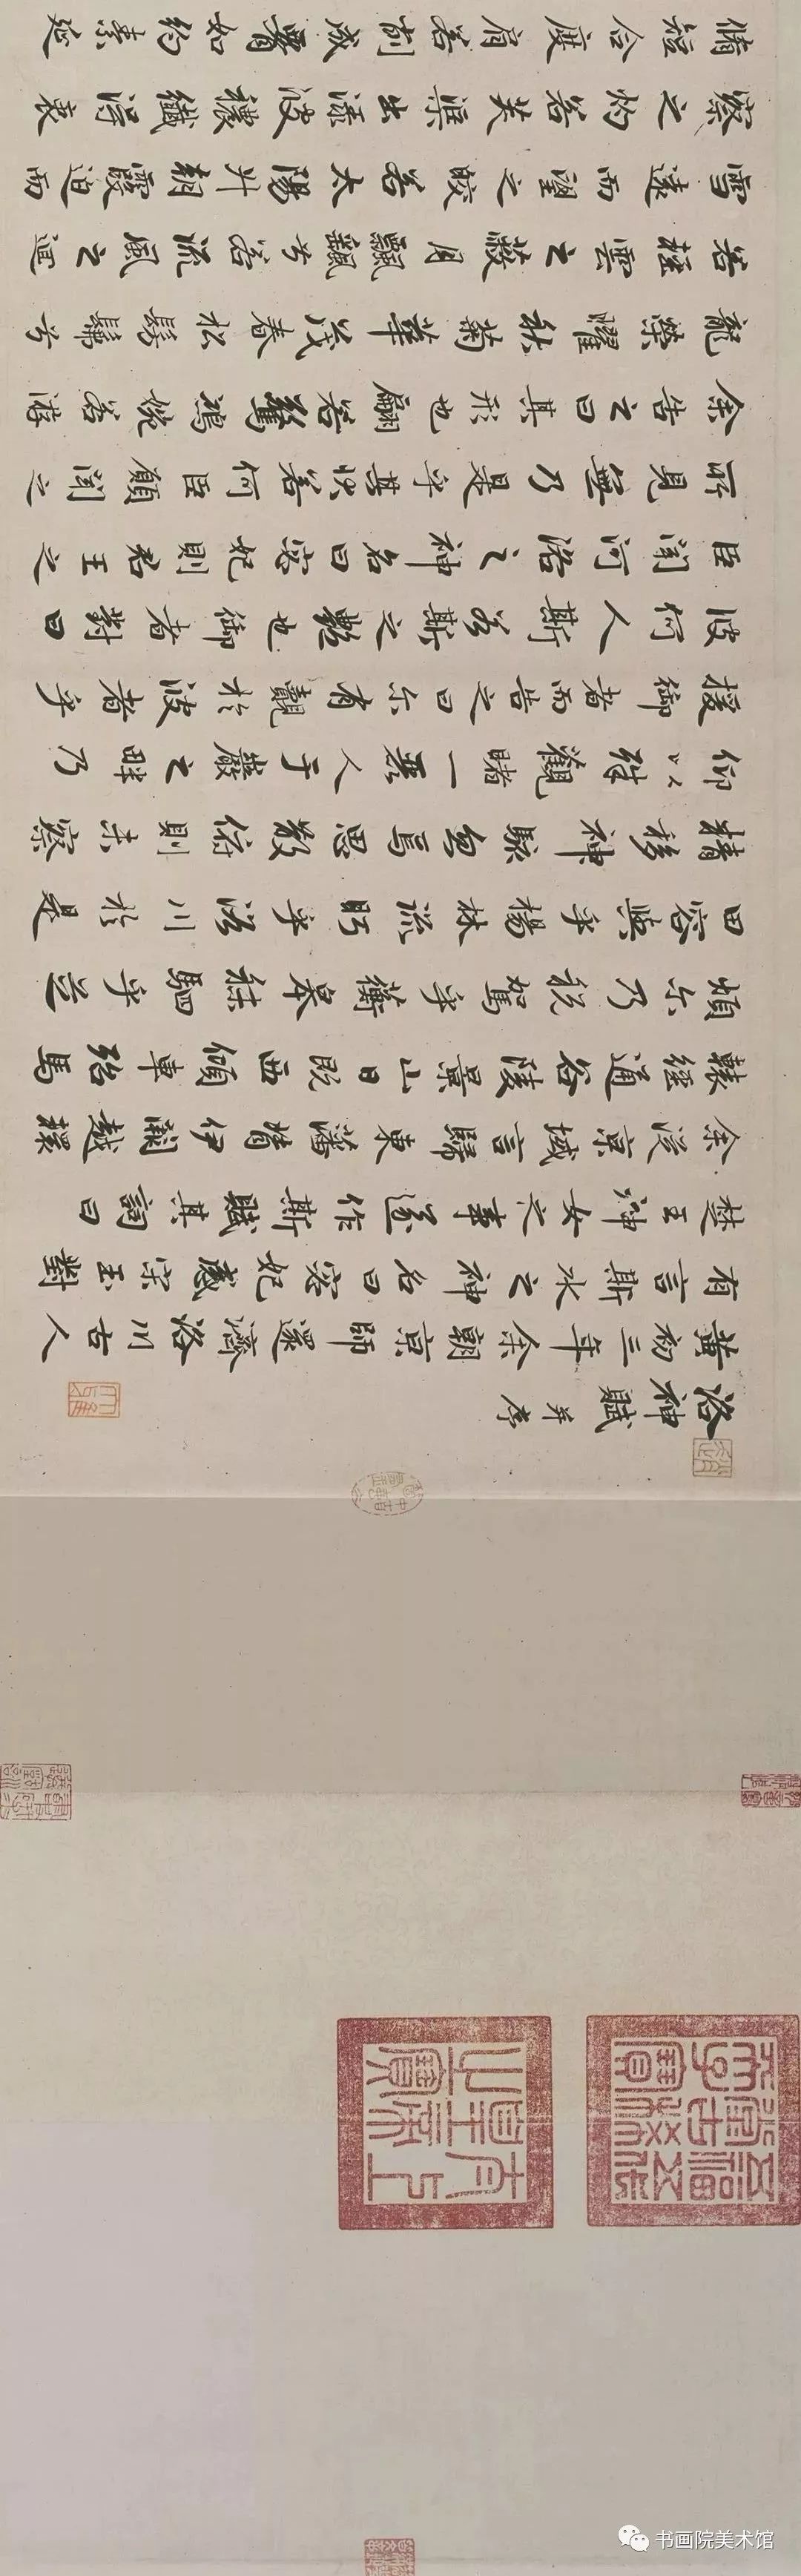 洛神賦并序
黃初三年余朝京師還濟洛川古人
有言斯水之神名曰宓妃感宋玉對
楚王神女之事遂作斯賦其詞曰
余從京域言歸東藩背伊闕越轘
轅經通谷陵景山日既西傾車殆馬
煩尔乃稅駕乎蘅皋秣駟乎芝
田容與乎楊林流眄乎洛川於是
精移神駭忽焉思散俯則未察
仰以殊觀睹一麗人于巖之畔乃
援御者而告之曰尔有覿於彼者乎
彼何人斯若斯之艷也御者對曰
臣聞河洛之神名曰宓妃則君王之
所見無乃是乎其狀若何臣願聞之
余告之曰其形也翩若驚鴻婉若游
龍榮曜秋菊華茂春松髣髴兮
若輕雲之蔽月飄颻兮若流風之迴
雪遠而望之皎若太陽升朝霞迫而
察之灼若芙蕖出淥波穠纖得衷
脩短合度肩若削成腰如約素延
五福五代堂古稀天子寶
太上皇帝之寶
书画院美术馆